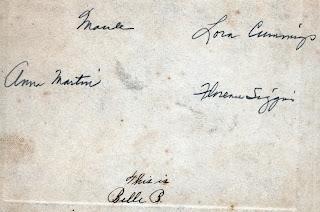 Maude Lora Cummings
Anna Martin Florence Siggins
This is
Belle B.